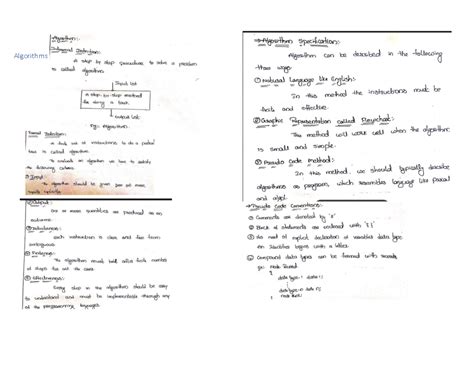 Algorithms
Algorithm:-
Informal Definition:-
A step by step procedure to solve a problem
is called algorithm.
Input list
A step-by-step method
for doing a task
Output list
Eg:- Algorithm.
Formal Definition:-
A finite set of instructions to do a
task is called algorithm.
algorithm we have to satisfy
the following criteria
① Input:-
The algorithm should be given zero or more
inputs
② Output:-
One or more quantities are produced as an
outcome
③ Definiteness:-
Each instruction is clear and free from
ambiguous
④ Finiteness:-
The algorithm must finite number
of steps for all the cases.
⑤ Effectiveness:-
Every step in the algorithm should be easy
to understand and must be implementable through any
of the programming languages.
→ Algorithm Specification:-
Algorithm can be described in the following
three ways
① Natural Language like English:-
In this method the instructions must be
and effective.
② Graphic Representation called Flowchart:-
The method will work well when the algorithm
is small and simple.
③ Pseudo Code Method:-
In this method, we should typically describe
algorithms as program, which resembles language like pascal
and algol.
→ Pseudo Code Conventions:-
① Comments are denoted by
② Block of statements are enclosed with "{ }"
③ As no explicit declaration of variables data type
An Identifier begins with a letter.
④ Compound data types can be formed with records
Record
{
data type-1 data-1;
data type-n data n;
}